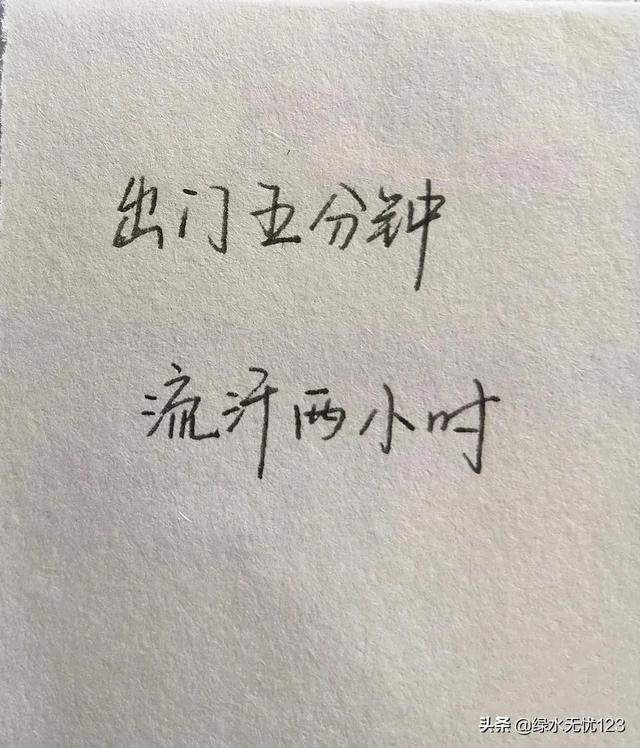 出门五分钟
流汗两小时
头条 @绿水无忧123